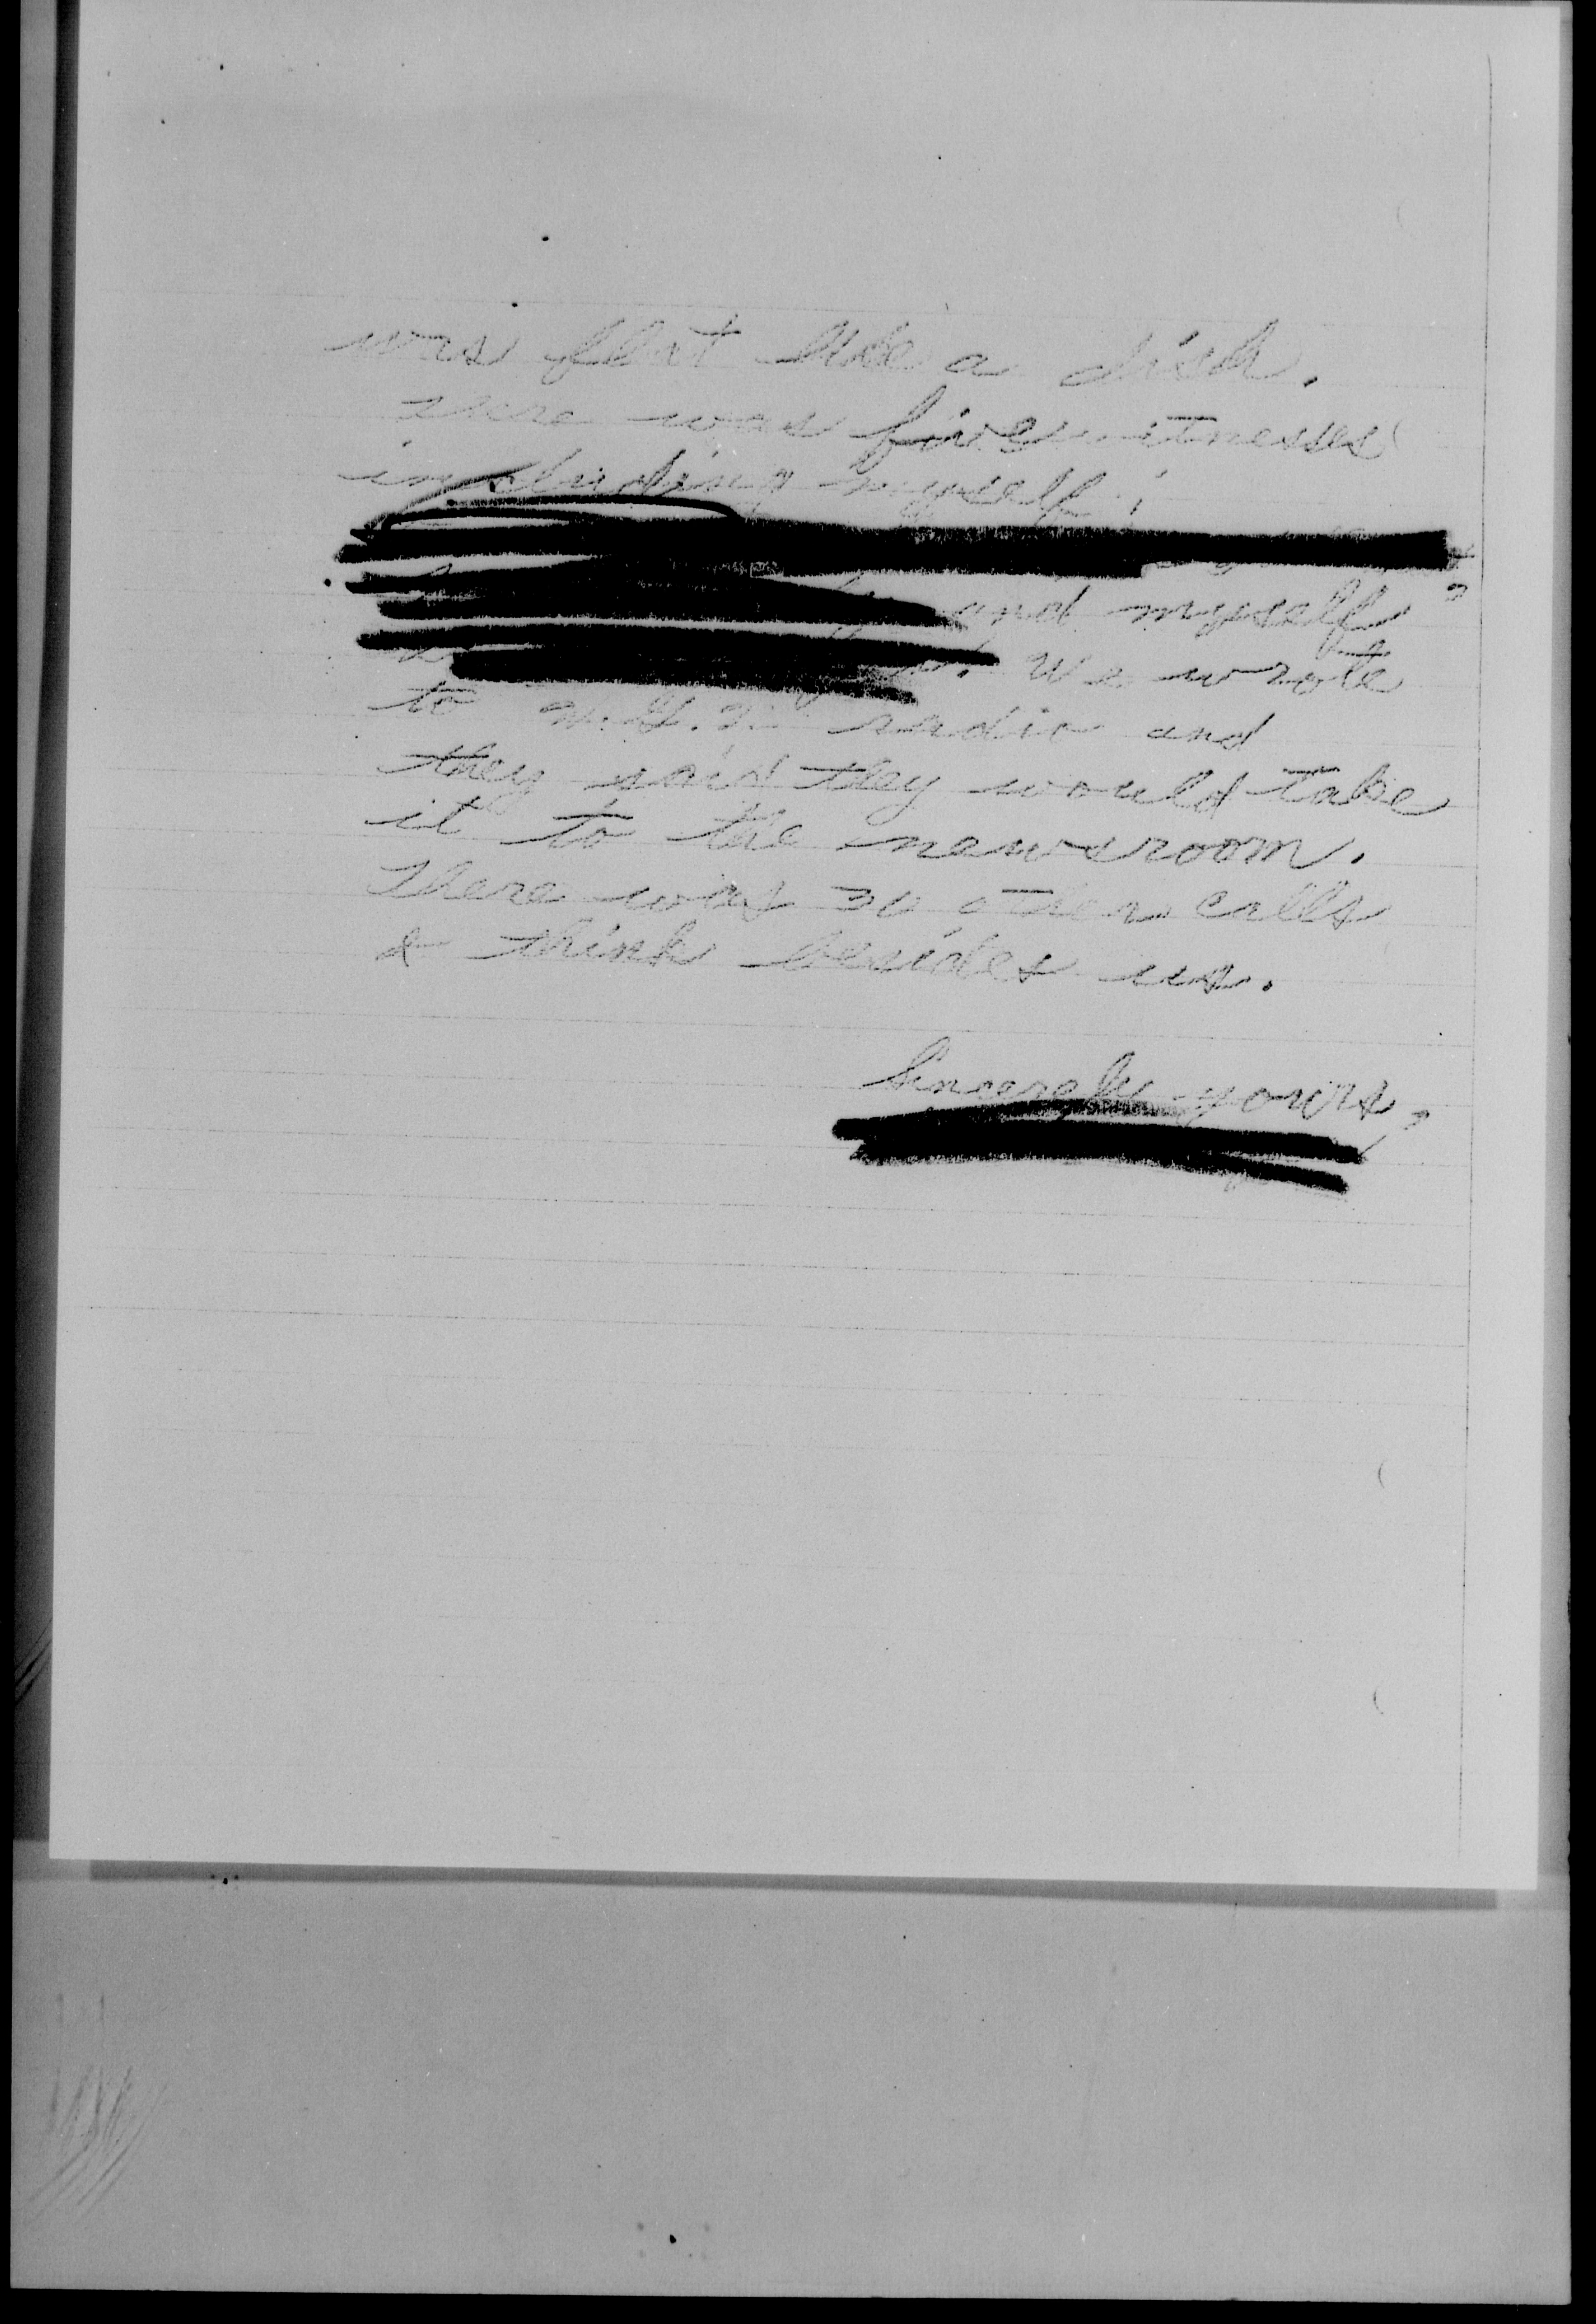 was flat like a dish.
There was five witnesses
including myself;
and myself
. We wrote
to radio and
they said they would take
it to the newsroom.
There was 30 other calls
I think besides us.
Sincerely yours,